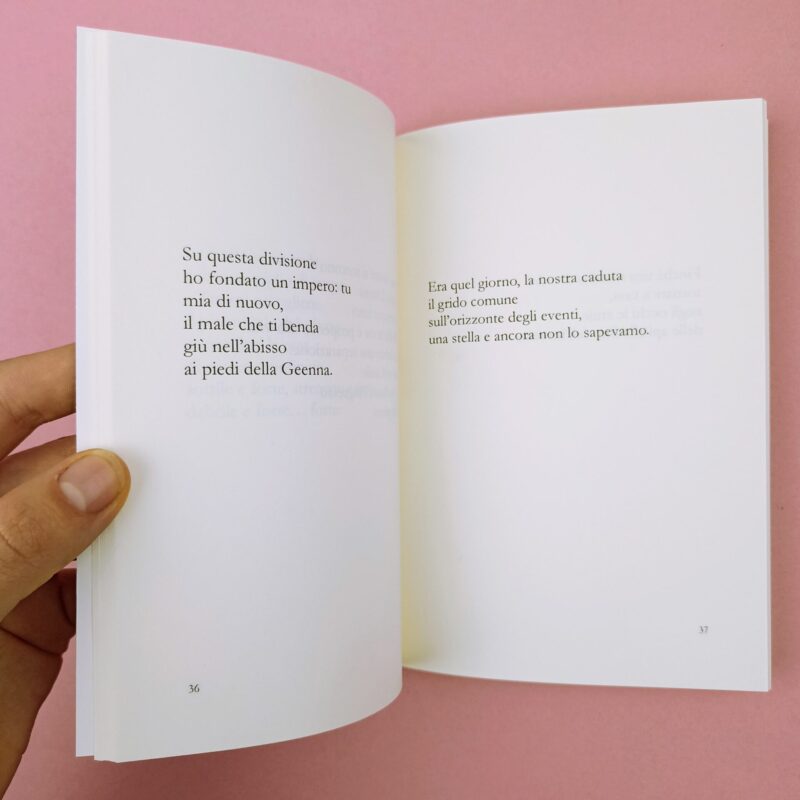 Su questa divisione
ho fondato un impero: tu
mia di nuovo,
il male che ti benda
giù nell'abisso
ai piedi della Geenna.
36
Era quel giorno, la nostra caduta
il grido comune
sull'orizzonte degli eventi,
una stella e ancora non lo sapevamo.
37